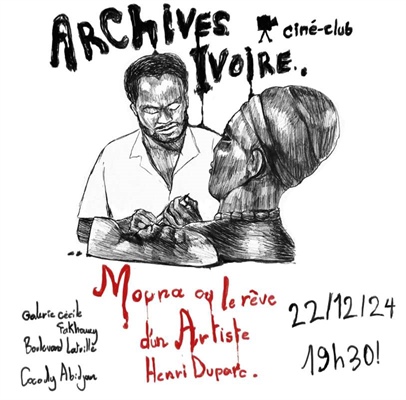 ARCHIVES
ciné-club
IVOIRE..
Mouna ou le rêve
d'un Artiste
Henri Duparc.
Galerie Cécile
Fakhoury
Boulevard Latrille
Cocody Abidjan
22/12/24
19h30!